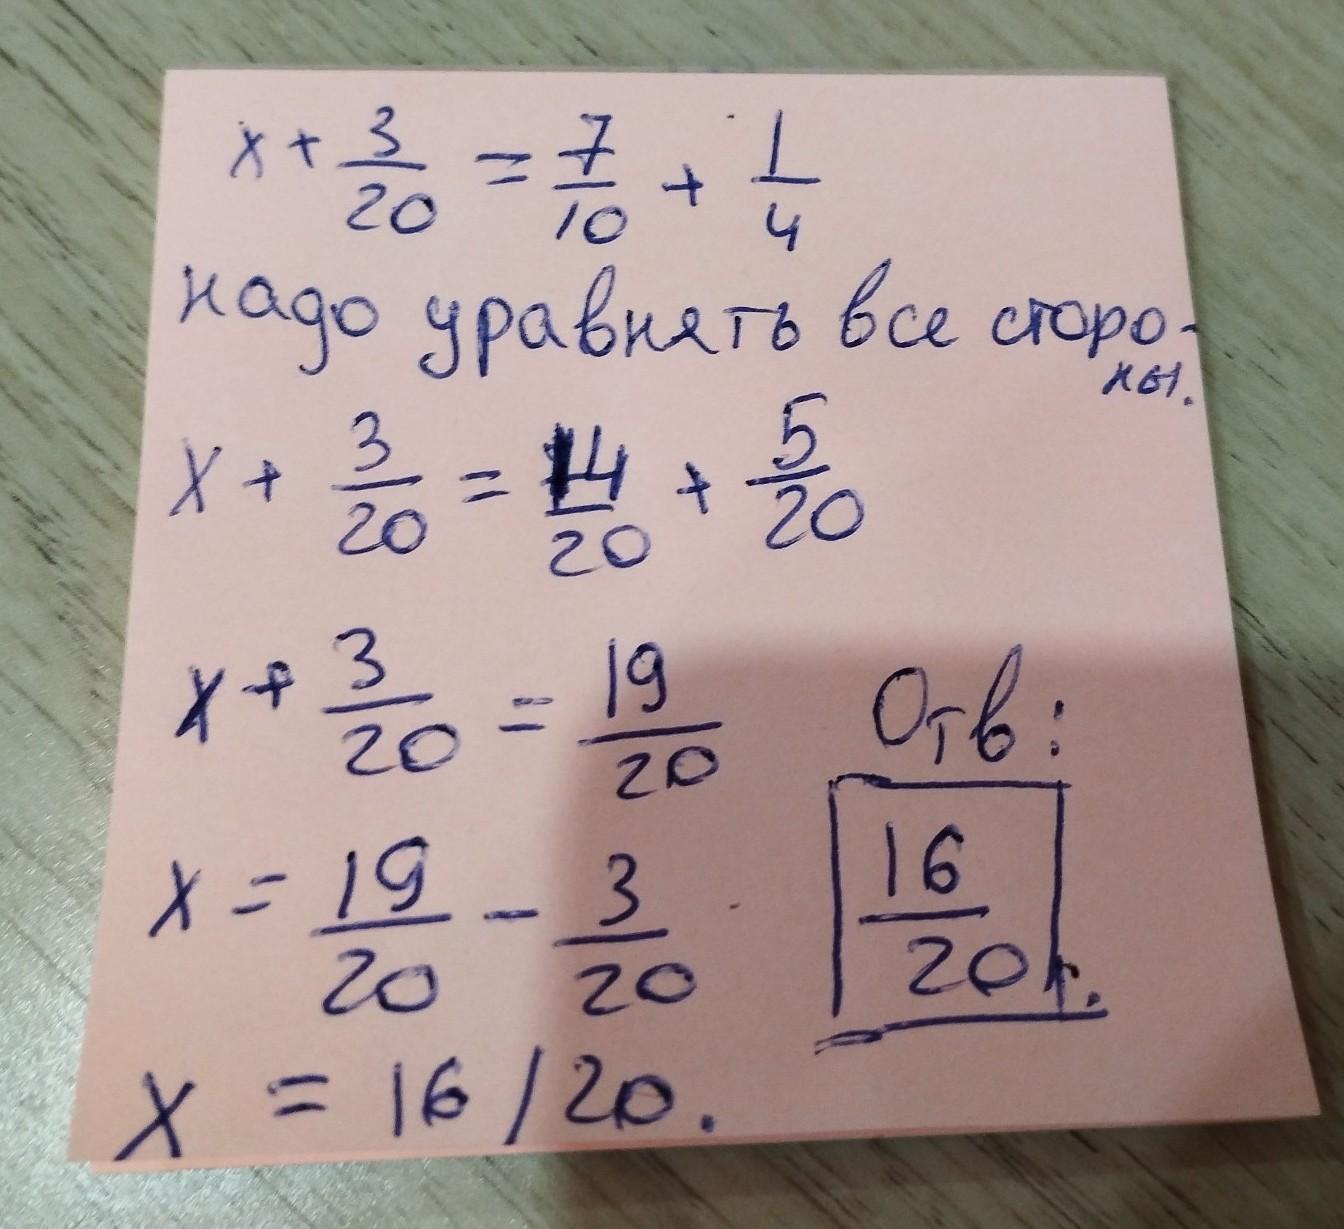 x + 3/20 = 7/10 + 1/4
надо уравнять все сторо-
ны.
x + 3/20 = 14/20 + 5/20
x + 3/20 = 19/20
x = 19/20 - 3/20
x = 16/20.
Отв:
16/20